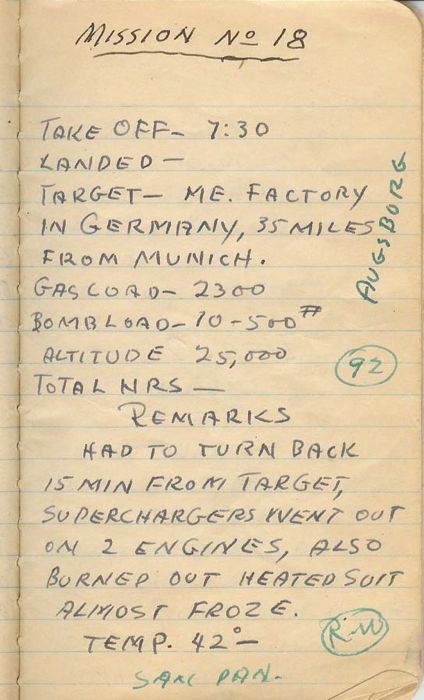 MISSION NO 18
TAKE OFF- 7:30
LANDED -
TARGET- ME. FACTORY
IN GERMANY, 35 MILES
FROM MUNICH.
AUGSBURG
GAS LOAD- 2300
BOMB LOAD- 10-500#
ALTITUDE 25,000
92
TOTAL HRS -
REMARKS
HAD TO TURN BACK
15 MIN FROM TARGET,
SUPERCHARGERS WENT OUT
ON 2 ENGINES, ALSO
BURNED OUT HEATED SUIT
ALMOST FROZE.
TEMP. 42°-
SAN PAN.